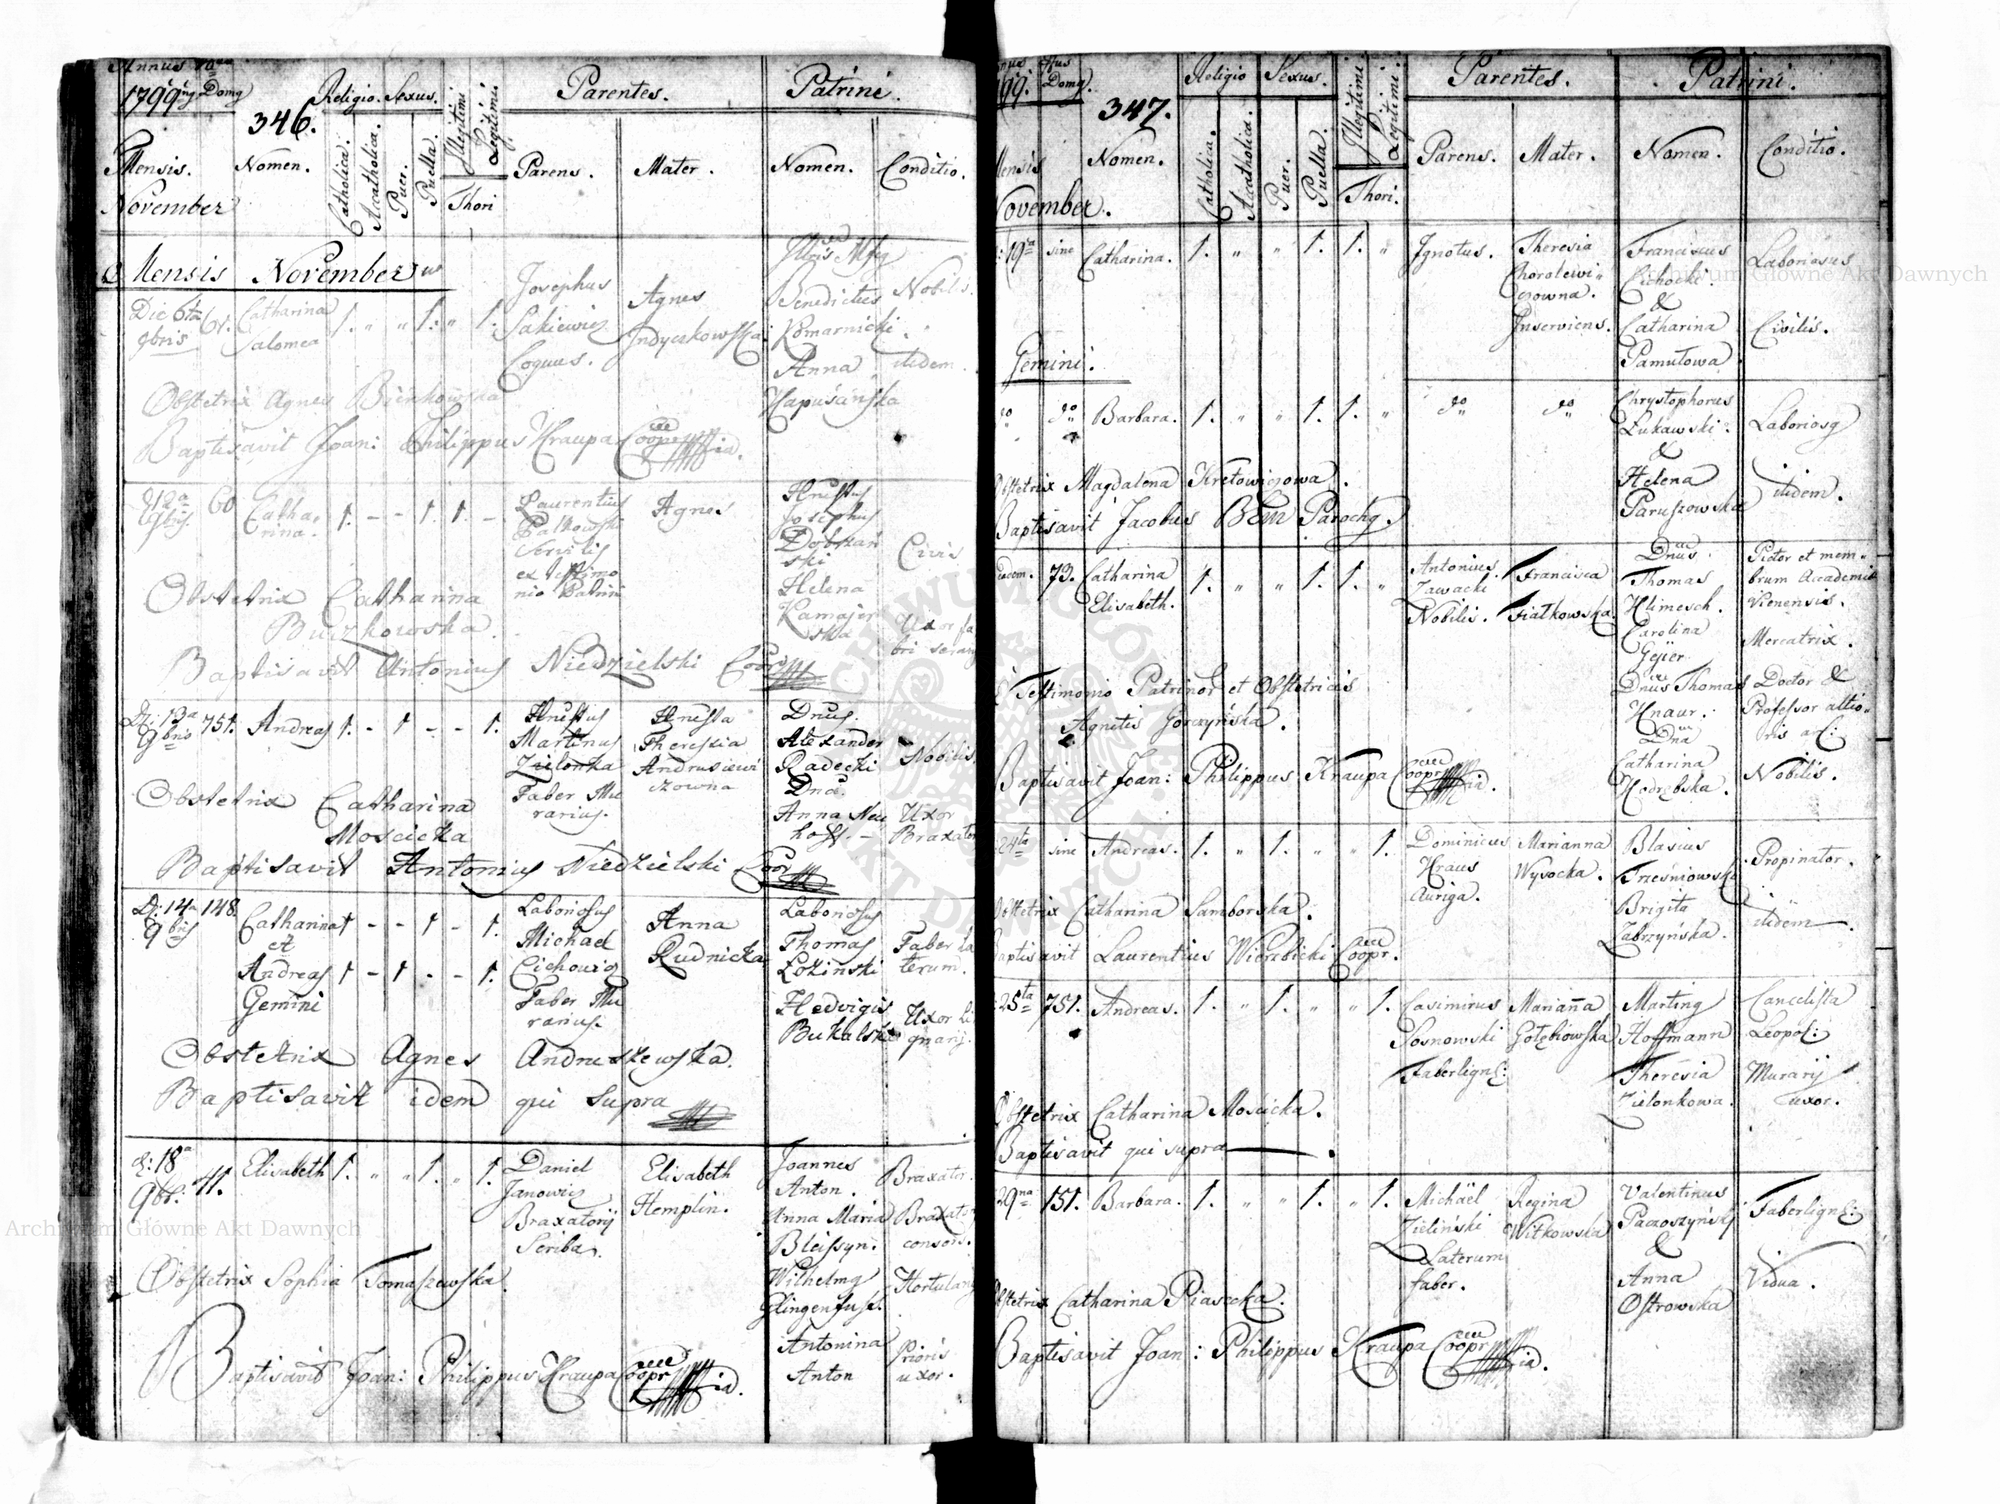 Annus
1799
Domg
346.
Religio. Sexus.
Illegitimi
Legitimi
Parentes.
Patrini.
Mensis.
Nomen.
Catholica.
Acatholica.
Puer.
Puella.
Thori
Parens.
Mater.
Nomen.
Conditio.
November
Mensis November
Die 6ta 9bris 61. Catharina Salomea 1. „ „ 1. „ 1.
Josephus
Sakiewicz
Coquus.
Agnes
Indyczkowska
Benedictus
Komarnicki.
Anna
Hapuśańska
Nobilis.
itidem.
Obstetrix Agnes Bienkowska
Baptisavit Joan: Philippus Kraupa Coopr
12a 9bris 60 Catharina. 1. - - 1. 1. -
Laurentius
Palkowski
Servilis
ex testimo
nio Patrini
Agnes
Hnestus
Josephus
Dobrzań
ski
Helena
Kamajer
ska
Civis
Uxor fa
bri serar
Obstetrix Catharina
Buczkowska.
Baptisavit Antonius Niedzielski Coopr
Di: 13a 9bris 751. Andreas 1. - 1 - - 1.
Hnestus
Martinus
Zielonka
Faber Mu
rarius.
Hnesta
Theressia
Andrusiewi
czowna
Dnus.
Alexander
Radecki
Dna.
Anna Neu
hoff. -
Nobilis
Uxor
Braxator
Obstetrix Catharina
Moscicka
Baptisavit Antonius Niedzielski Coopr
Di: 14a 9bris 148. Catharina 1 - - 1 - 1.
et
Andreas 1 - 1 - - 1.
Gemini
Laboriosus
Michael
Cichowicz
Faber Mu
rarius.
Anna
Rudnicka
Laboriosus
Thomas
Łozinski
Hedvigis
Bukalska
Faber la
terum.
Uxor li
gnarij.
Obstetrix Agnes Andruszewska.
Baptisavit idem qui supra
d: 18a 9br: 11. Elisabeth 1. „ „ 1. „ 1.
Daniel
Janowicz
Braxatorij
Scriba.
Elisabeth
Hemplin.
Joannes
Anton.
Anna Maria
Bleissyn.
Wilhelmg
Glingenfusl.
Antonina
Anton
Braxator.
Braxator
consors.
Hortulang
Prioris
uxor.
Obstetrix Sophia Tomaszewska.
Baptisavit Joan: Philippus Kraupa Coopr
347.
Domg.
Religio
Sexus.
Illegitimi
Legitimi
Parentes.
Patrini.
Mensis
Nomen.
Catholica.
Acatholica.
Puer.
Puella.
Thori.
Parens.
Mater.
Nomen.
Conditio.
November.
19a sine Catharina. 1. „ „ 1. 1. „
Ignotus.
Theresia
Chorolewi
czowna.
Inserviens.
Franciscus
Cichocki.
&
Catharina
Pamułowa
Laboriosus
Civilis.
Gemini.
do do Barbara. 1. „ „ 1. 1. „ do do
Chrystophorus
Łukawski.
&
Helena
Paruszowska
Laboriosg
itidem.
Obstetrix Magdalena Kretowiczowa.
Baptisavit Jacobus Bem Parochg.
eadem. 73. Catharina Elisabeth. 1. „ „ 1. 1. „
Antonius
Zawacki
Nobilis.
Francisca
Fiałkowska.
Dnus.
Thomas
Klimesch.
Carolina
Gejer
Dnus Thomas
Knaur.
Dna
Catharina
Kodrębska.
Pictor et mem-
brum Academiæ
Vienensis.
Mercatrix.
Doctor &
Professor altio-
ris
Nobilis.
Testimonio Patrinor et Obstetricis
Agnetis Gorczyńska.
Baptisavit Joan: Philippus Kraupa Coopr
24ta sine Andreas. 1. „ 1. „ „ 1.
Dominicus
Kraus
Auriga.
Marianna
Wysocka.
Blasius
Trześniowski
Brigita
Zabrzyńska.
Propinator.
itidem
Obstetrix Catharina Samborska.
Baptisavit Laurentius Wierzbicki Coopr.
25ta 751. Andreas. 1. „ 1. „ „ 1.
Casimirus
Sosnowski
Faberlign:
Marianna
Gołębiowska
Marting
Hoffmann
Theresia
Zielonkowa.
Cancelista
Leopol:
Murarij
uxor.
Obstetrix Catharina Moscicka.
Baptisavit qui supra
29na 151. Barbara. 1. „ „ 1. „ 1.
Michäel
Zieliński
Laterum
faber.
Regina
Witkowska
Valentinus
Paczoszyński
&
Anna
Ostrowska
Faberlign:
Vidua.
Obstetrix Catharina Piasecka.
Baptisavit Joan: Philippus Kraupa Coopr
Archiwum Główne Akt Dawnych
Archiwum Główne Akt Dawnych
ARCHIWUM GŁÓWNE AKT DAWNYCH